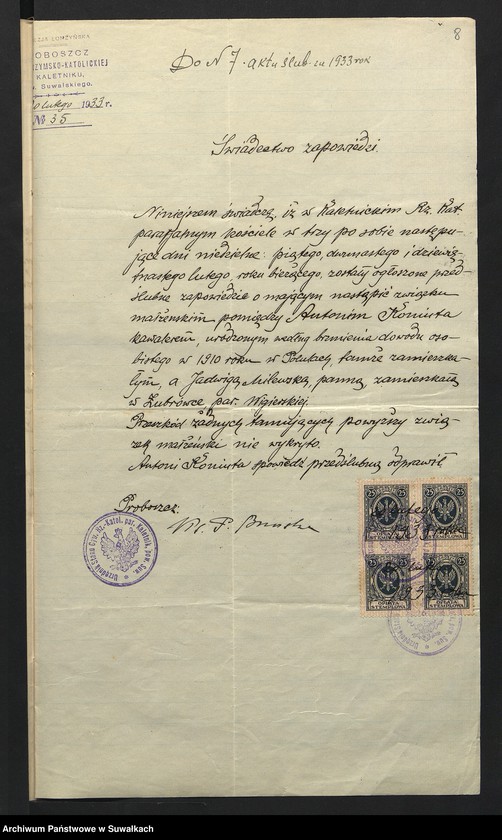 8
ZJA ŁOMŻYŃSKA
OBOSZCZ
ZYMSKO-KATOLICKIEJ
KALETNIKU,
Suwalskiego.
lutego 1933 r.
№ 35
Do N 7 aktu ślub. za 1933 rok
Świadectwo zapowiedzi.
Niniejszem świadczę, iż w Kaletnickim Rz. Kat.
parafjalnym kościele w trzy po sobie następu-
jące dni niedzielne: piątego, dwunastego i dziewięt-
nastego lutego, roku bieżącego, zostały ogłoszone przed-
ślubne zapowiedzie o mającym nastąpić związku
małżeńskim pomiędzy Antonim Koniuta
kawalerem, urodzonym według brzmienia dowodu oso-
bistego w 1910 roku w tamże zamieszka-
łym, a Jadwigą Milewską, panną, zamieszkałą
w Żubrówce, par. Wigierskiej.
Przeszkód żadnych tamujących powyższy zwią-
zek małżeński nie wykryto.
Antoni Koniuta spowiedź przedślubną odprawił.
Proboszcz:
Urzędnik Stanu Cyw. Rz.-Katol. par. Kaletnik, pow. Suw.
25 25
25 25
OPŁATA STEMPLOWA
OPŁATA STEMPLOWA
Archiwum Państwowe w Suwałkach